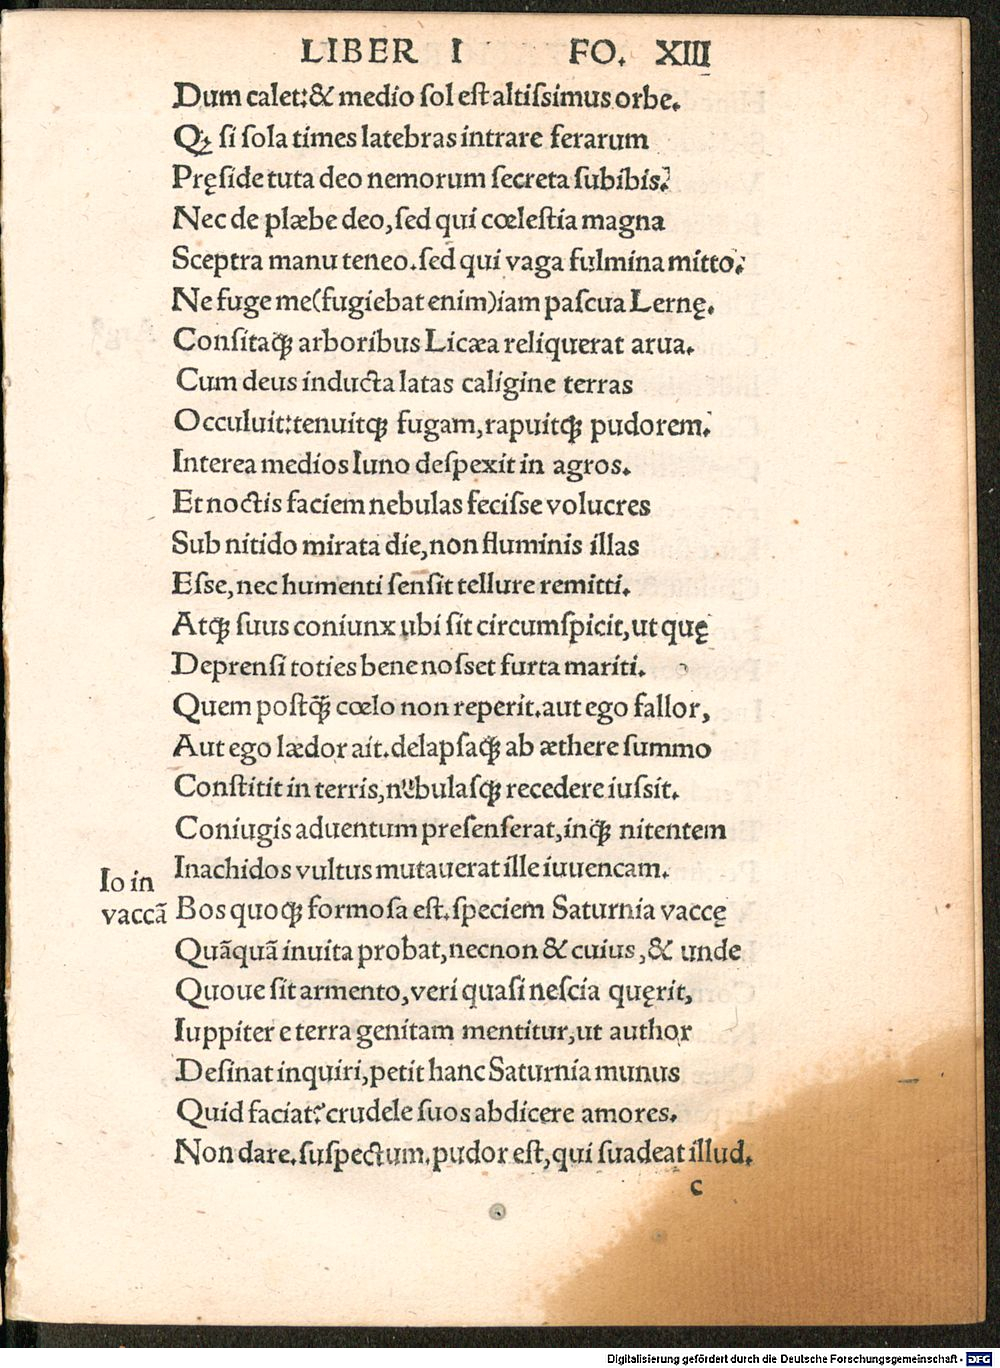 LIBER I FO. XIII
Dum calet:& medio sol est altissimus orbe.
Qꝫ si sola times latebras intrare ferarum
Pręside tuta deo nemorum secreta subibis.
Nec de plæbe deo, sed qui cœlestia magna
Sceptra manu teneo. sed qui vaga fulmina mitto.
Ne fuge me(fugiebat enim)iam pascua Lernę.
Consitaqꝫ arboribus Licæa reliquerat arua.
Cum deus inducta latas caligine terras
Occuluit:tenuitqꝫ fugam, rapuitqꝫ pudorem.
Interea medios Iuno despexit in agros.
Et noctis faciem nebulas fecisse volucres
Sub nitido mirata die, non fluminis illas
Esse, nec humenti sensit tellure remitti.
Atqꝫ suus coniunx ubi sit circumspicit, ut quę
Deprensi toties bene nosset furta mariti.
Quem postqꝫ̃ cœlo non reperit. aut ego fallor,
Aut ego lædor ait. delapsaqꝫ ab æthere summo
Constitit in terris, nebulasqꝫ recedere iussit.
Coniugis aduentum presenserat, inqꝫ nitentem
Inachidos vultus mutauerat ille iuuencam.
Io in
vaccã
Bos quoqꝫ formosa est. speciem Saturnia vaccę
Quãquã inuita probat, necnon & cuius, & unde
Quoue sit armento, veri quasi nescia quęrit,
Iuppiter e terra genitam mentitur, ut author
Desinat inquiri, petit hanc Saturnia munus
Quid faciat? crudele suos abdicere amores.
Non dare. suspectum. pudor est, qui suadeat illud.
c
Digitalisierung gefördert durch die Deutsche Forschungsgemeinschaft - DFG